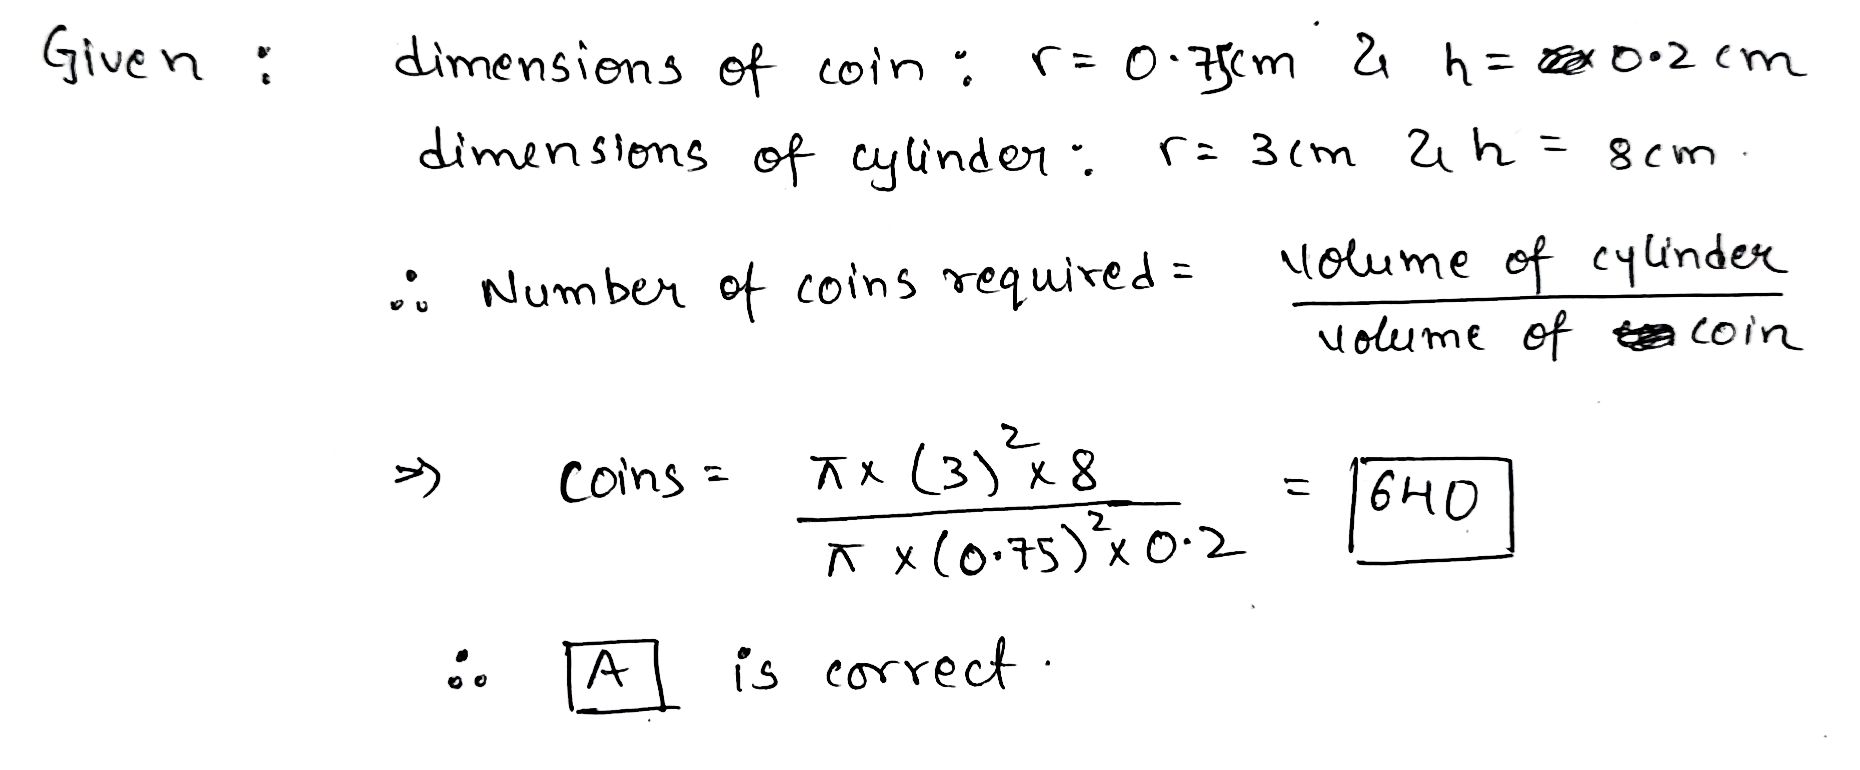 Given : dimensions of coin : r = 0.75cm & h = 0.2 cm
dimensions of cylinder : r = 3cm & h = 8cm.
∴ Number of coins required = volume of cylinder
volume of coin
⇒ coins = π x (3)² x 8 = 640
π x (0.75)² x 0.2
∴ A is correct.